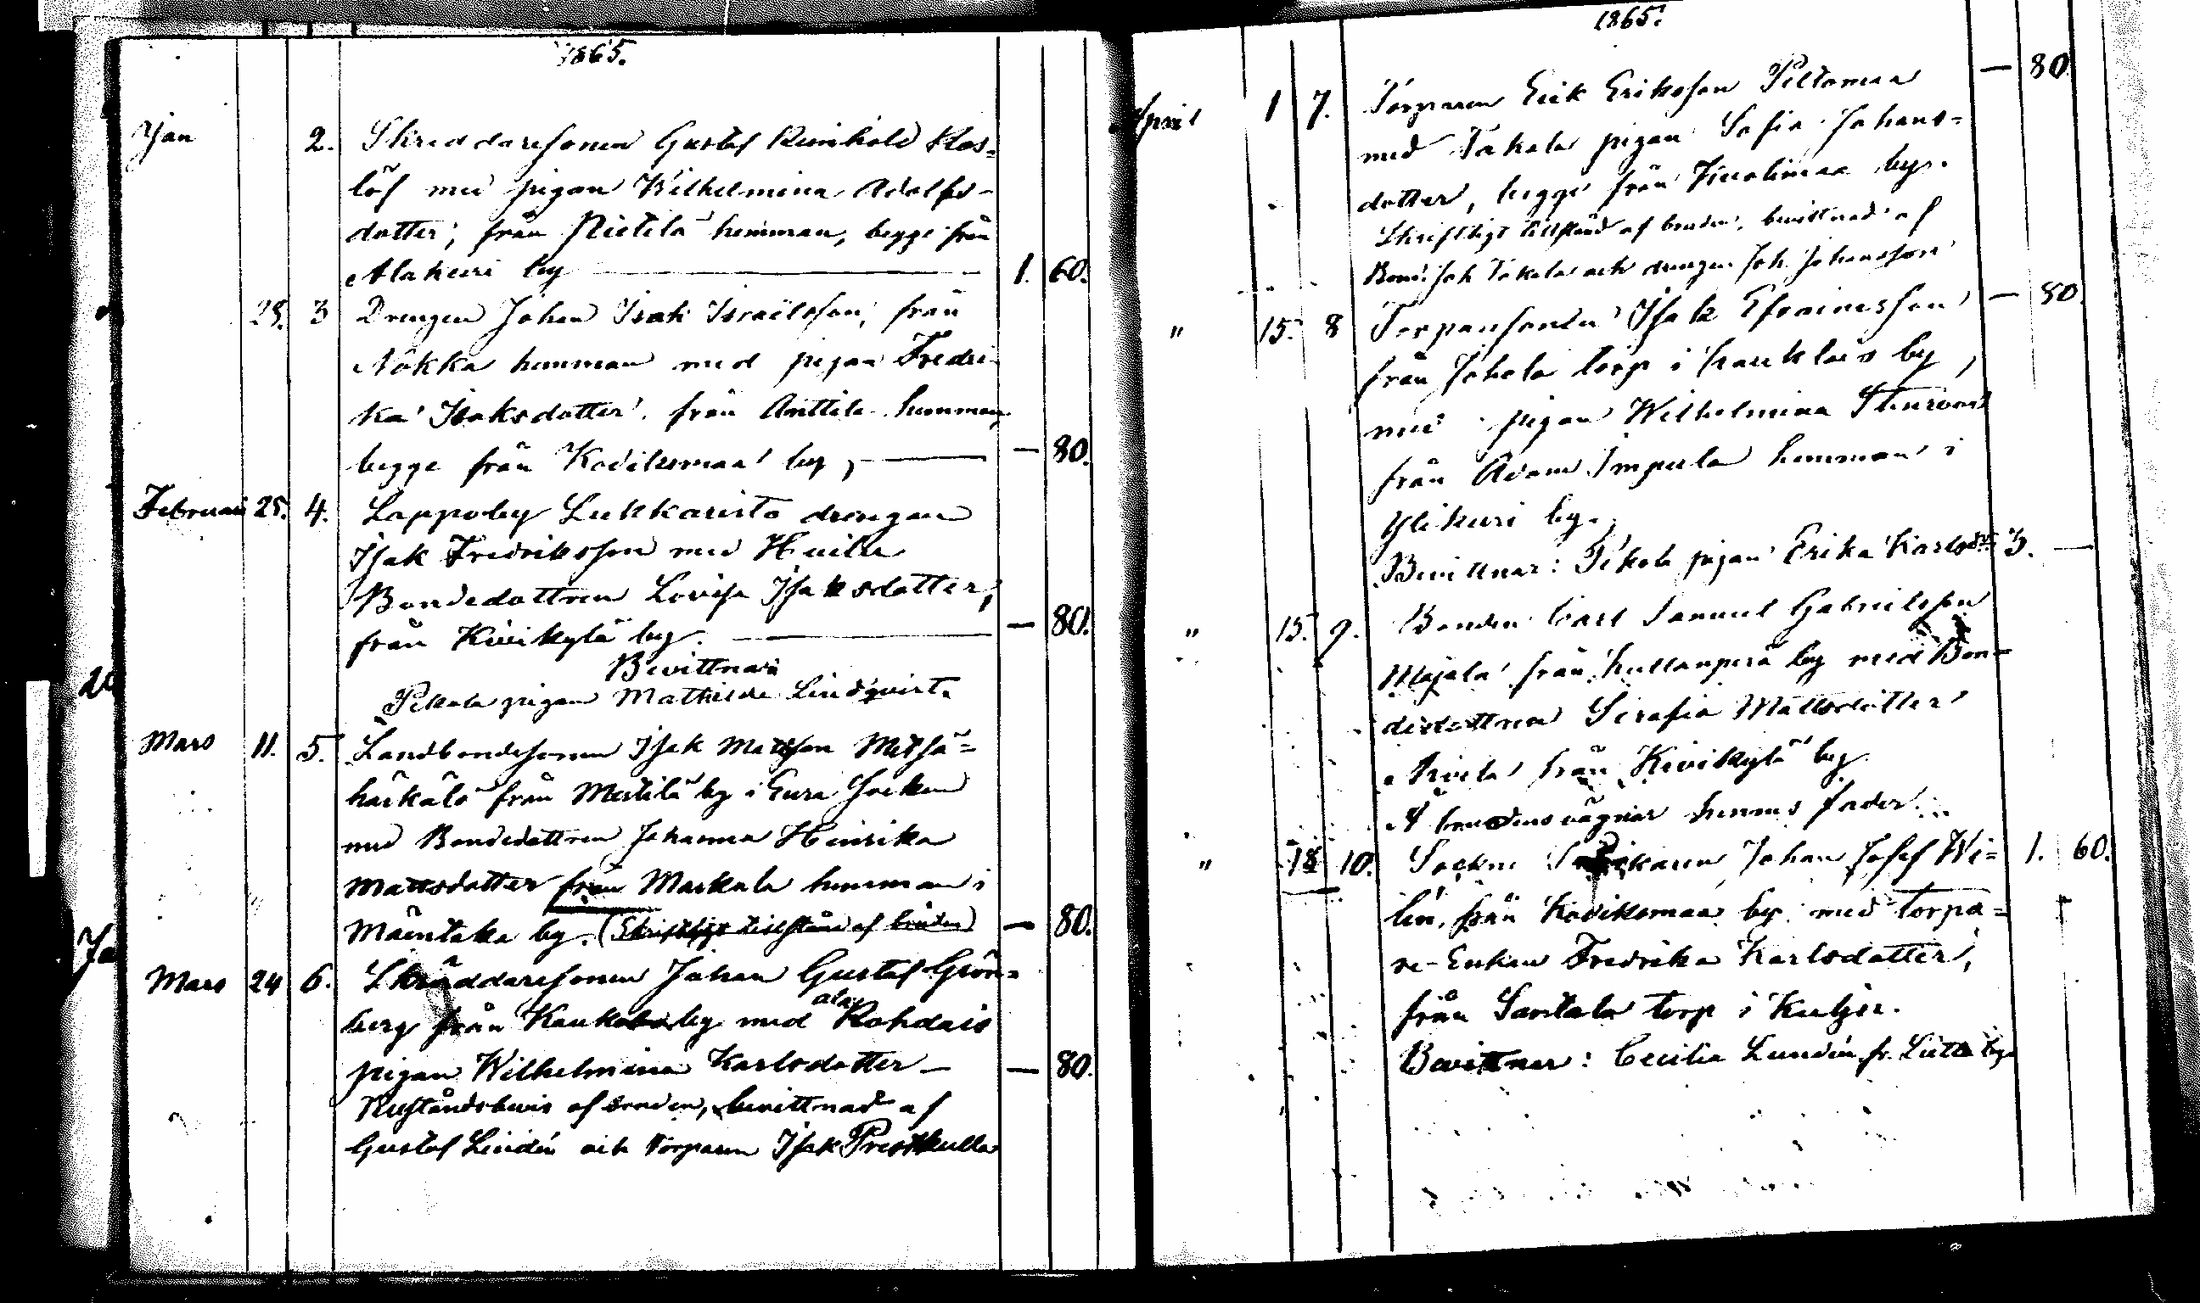 1865.
Jan 2. Skreddaresonen Gustaf Reinhold Ros=
löf med pigan Wilhelmina Adolfs-
dotter, från Pietilä hemman, begge från
Alakeri by — 1. 60.
28. 3 Drengen Johan Isak Israelsson, från
Nökka hemman med pigan Fredri-
ka Isaksdotter, från Anttila hemman,
begge från Kodiksmaa by, — — 80.
Februari 25. 4. Lappoby Lukkarista drengen
Isak Fredriksson med Heiila
Bondedottren Lovisa Isaksdotter,
från Kivikylä by. — — 80.
Bevittnar
Pekola pigan Mathilda Lindqvist.
Mars 11. 5. Landbondesonen Isak Matsson Metsä=
härkälä från Mestilä by i Eura Socken
med Bondedottren Johanna Henrika
Mattsdotter från Markula hemman i
Mäentaka by. (Skriftligt tillstånd af bruden) — 80.
Mars 24 6. Skräddaresonen Johan Gustaf Grön=
berg från by med Rohdais
pigan Wilhelmina Karlsdotter — — 80.
af bruden, bevittnad af
Gustaf Lindén och Torparen Isak Prestkulla
1865.
April 1 7. Torparen Erik Eriksson Peltomaa — 80
med Takala pigan Sofia Johans=
dotter, begge från Kuolimaa by.
Skriftligt tillstånd af bruden, bevittnad af
Bond. Joh Takala och drengen Joh. Johansson
" 15. 8 Torparsonen Isak Efraimsson — 80
från Johola torp i Kauklais by,
med pigan Wilhelmina
från Adam Impola hemman i
Ylikeri by.
Bevittnar: Pekola pigan Erika Karlsdtr 3. —
" 15. 9. Bonden Carl Samuel Gabrielsson
från Kullanperä by med Bon-
dedottren Serafia Mattsdotter
från Kivikylä by.
Å brudens vägnar hennes fader.
" 18 10. Sockne Johan Josef We= 1. 60.
lin, från Kodiksmaa by med torpa=
re-Enkan Fredrika Karlsdotter,
från Santala torp i Kuljo.
Bevittnar: Cecilia Lundén fr. by